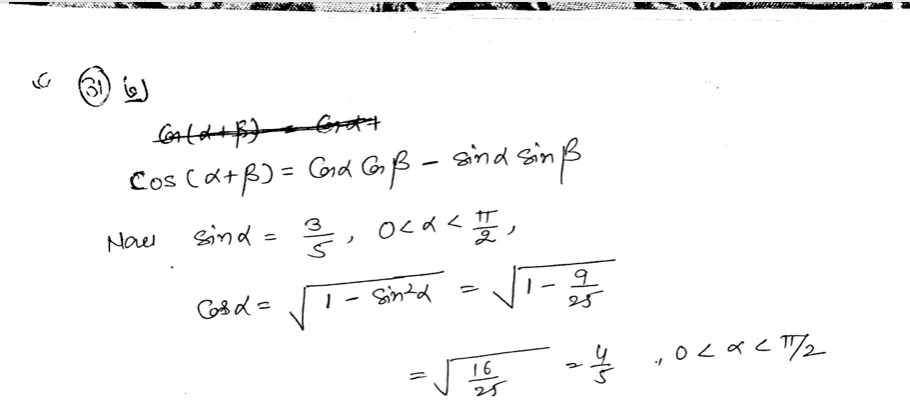 (31) b)
Cos(α+β) = Cosα+
Cos(α+β) = Cosα Cosβ - sinα sinβ
Now sinα = 3/5, 0<α<π/2,
Cosα = √(1 - Sin²α) = √(1 - 9/25)
= √(16/25) = 4/5, 0<α<π/2